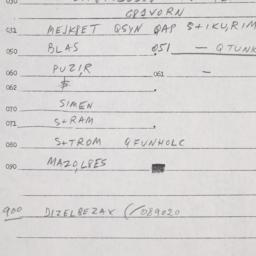 031 MEJKPET QSYN QAP S+IKURIM
050 BLAS 051 — QTUNK
060 PUZIR 061 —
062 $
070 SIMEN
071 S+RAM
080 S+TROM QFUNHOLC
090 MAZO,LBES
900 DIZELBEZAX (/089020